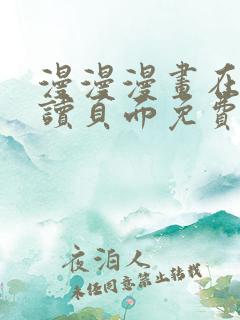 漫漫漫畫在
讀頁面免費
夜泊人
未经同意禁止转载